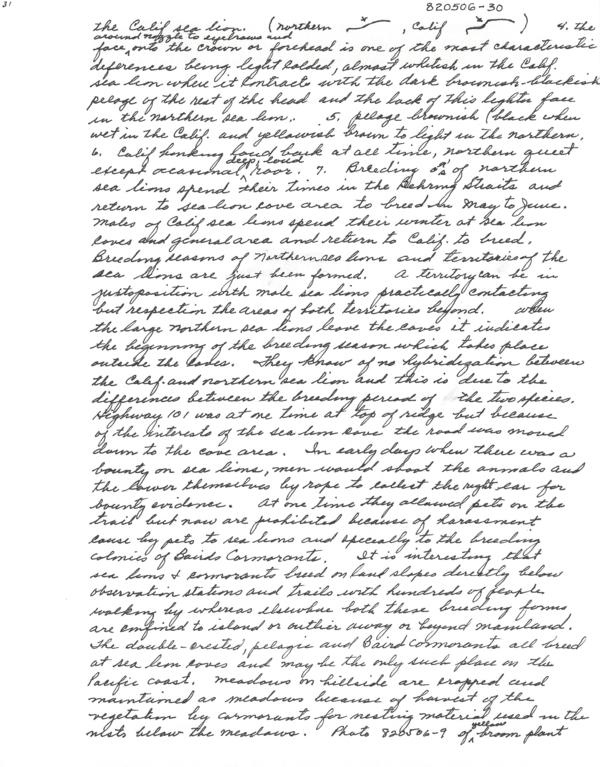 31
820506-30
the Calif sea lion. (northern , Calif ) 4. the
around nozzle to eyebrows and
face, onto the crown or forehead is one of the most characteristic
diferences being light colded, almost whitish in the Calif.
sea lion where it contracts with the dark brownish-blackish
pelage of the rest of the head and the lack of this lighter face
in the northern sea lion. 5. pelage brownish (black when
wet in the Calif. and yellowish brown to light in the northern.
6. Calif honking loud bark at all time, northern quiet
except occasional deep, loud roar. 7. Breeding ♂s of northern
sea lions spend their times in the Behring Straits and
return to sea lion cove area to breed in May to June.
Males of Calif sea lions spend their winter at sea lion
coves and general area and return to Calif. to breed.
Breeding seasons of Northern sea lions and territories of the
sea lions are just been formed. A territory can be in
justoposition with male sea lions practically contacting
but respection the areas of both territories beyond. When
the large northern sea lions leave the caves it indicates
the beginning of the breeding season which takes place
outside the caves. They know of no hybridization between
the Calif. and northern sea lion and this is due to the
differences between the breeding period of the two species.
Highway 101 was at one time at top of ridge but because
of the interests of the sea lion cove the road was moved
down to the cove area. In early days when there was a
bounty on sea lions, men would shoot the animals and
the lower themselves by rope to collect the right ear for
bounty evidence. At one time they allowed pets on the
trail but now are prohibited because of harassment
cause by pets to sea lions and specially to the breeding
colonies of Bairds Cormorants. It is interesting that
sea lions & cormorants breed on land slopes directly below
observation stations and trails with hundreds of people
walking by whereas elsewhere both these breeding forms
are confined to island or outlier away or beyond mainland.
The double-crested, pelagic and Baird cormorants all breed
at sea lion coves and may be the only such place on the
Pacific coast. Meadows on hillside are cropped and
maintained as meadows because of harvest of the
vegetation by cormorants for nesting material used in the
nests below the meadows. Photo 820506-9 of yellow broom plant